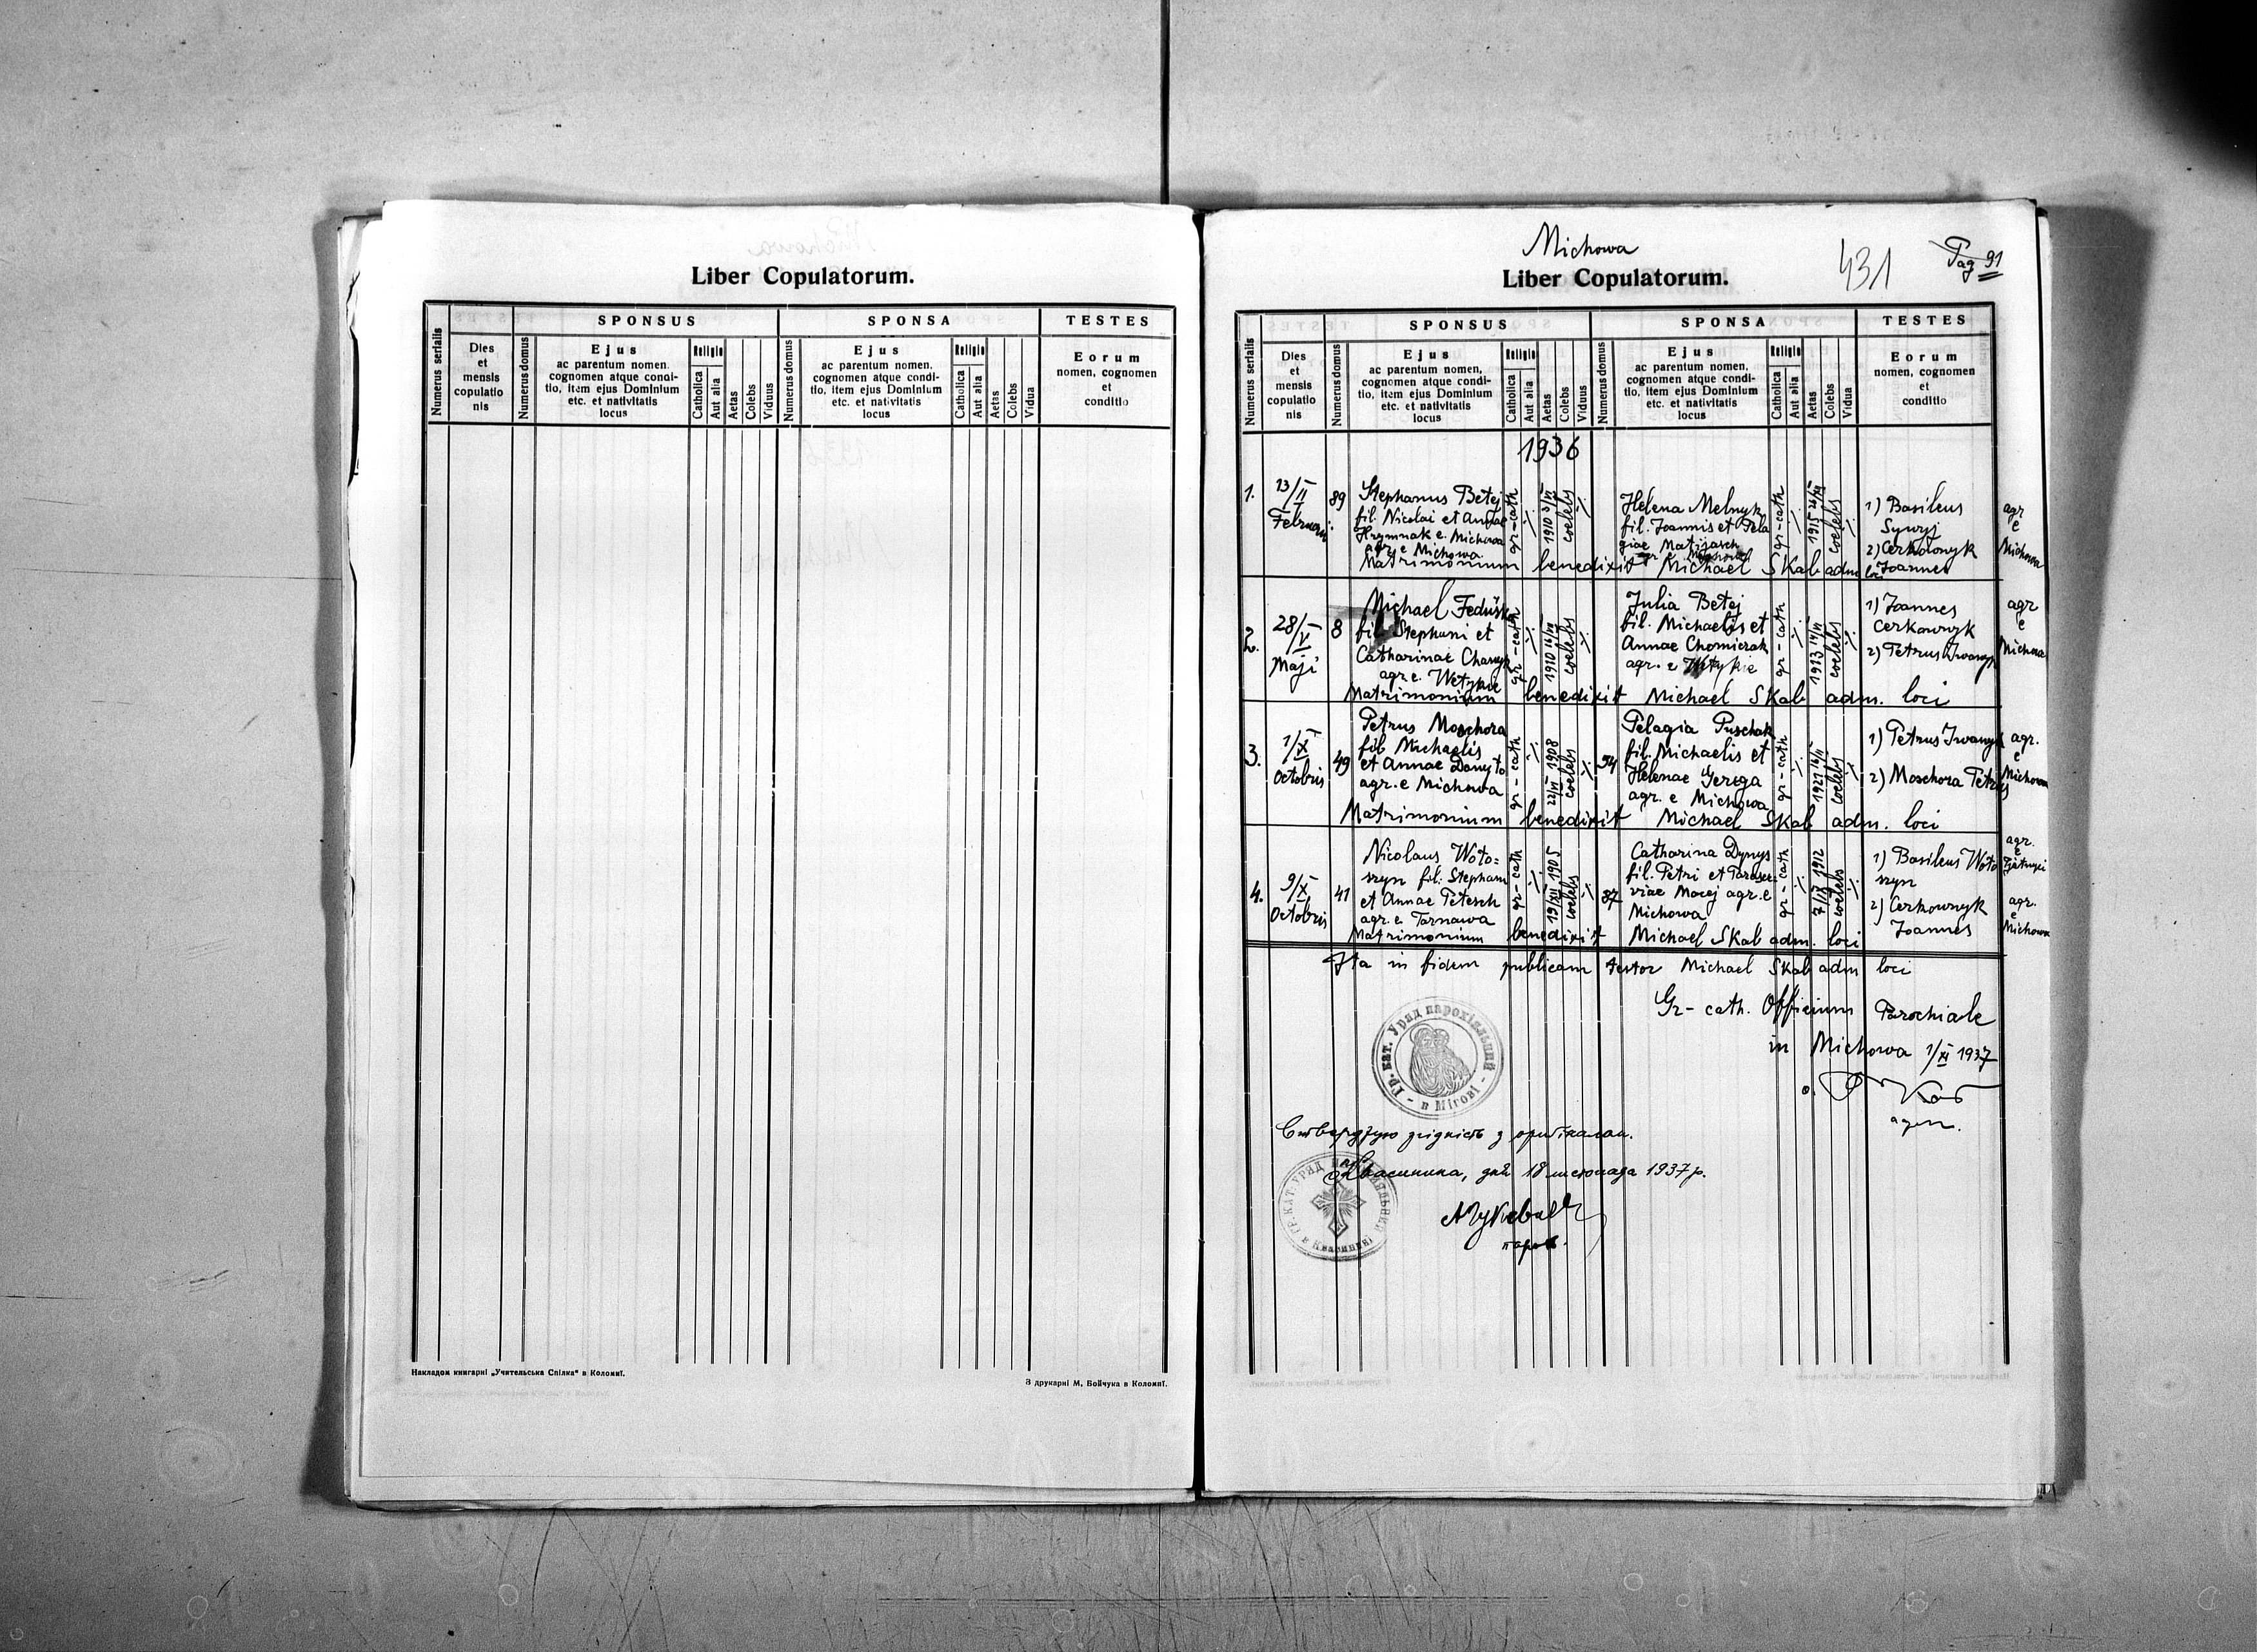 Liber Copulatorum.
Numerus serialis
Dies
et
mensis
copulatio
nis
Numerus domus
SPONSUS
Ejus
ac parentum nomen,
cognomen atque condi-
tio, item ejus Dominium
etc. et nativitatis
locus
Religio
Catholica
Aut alia
Aetas
Colebs
Viduus
Numerus domus
SPONSA
Ejus
ac parentum nomen,
cognomen atque condi-
tio, item ejus Dominium
etc. et nativitatis
locus
Religio
Catholica
Aut alia
Aetas
Colebs
Vidua
TESTES
Eorum
nomen, cognomen
et
conditio
Накладом книгарні „Учительська Спілка“ в Коломиї.
З друкарні М. Бойчука в Коломиї.
Michowa
431
Pag 91
Liber Copulatorum.
Numerus serialis
Dies
et
mensis
copulatio
nis
Numerus domus
SPONSUS
Ejus
ac parentum nomen,
cognomen atque condi-
tio, item ejus Dominium
etc. et nativitatis
locus
Religio
Catholica
Aut alia
Aetas
Colebs
Viduus
Numerus domus
SPONSA
Ejus
ac parentum nomen,
cognomen atque condi-
tio, item ejus Dominium
etc. et nativitatis
locus
Religio
Catholica
Aut alia
Aetas
Colebs
Vidua
TESTES
Eorum
nomen, cognomen
et
conditio
1936
1.
13/II
Februarii
89
Stephanus Betej
fil. Nicolai et Annae
Hrymnak e. Michowa
agr. e Michowa
gr-cath
1910
coelebs
Helena Melnyk
fil. Joannis et Pela
giae Matijasch
agr e Michowa
gr-cath
1915
coelebs
1) Basileus
Sywyj
2) Cerkownyk
Joannes
agr
e
Michowa
Matrimonium benedixit Michael Skab adm loci
2.
28/V
Maji
8
Michael Feduśko
fil. Stephani et
Catharinae Chanyk
agr e.
gr-cath
1910
coelebs
Julia Betej
fil. Michaelis et
Annae Chomiczak
agr. e
gr-cath
1913
coelebs
1) Joannes
Cerkownyk
2) Petrus Iwanyk
agr
e
Michowa
Matrimonium benedixit Michael Skab adm. loci
3.
1/X
Octobris
49
Petrus Moschora
fil Michaelis
et Annae Danyło
agr. e Michowa
gr-cath
22/VI 1908
coelebs
54
Pelagia Puschak
fil. Michaelis et
Helenae Gerega
agr. e Michowa
gr-cath
1921
coelebs
1) Petrus Iwanyk
2) Moschora Petrus
agr.
e
Michowa
Matrimonium benedixit Michael Skab adm. loci
4.
9/X
Octobris
41
Nicolaus Woło=
szyn fil. Stephani
et Annae Petesch
agr. e. Tarnawa
gr-cath
19/XII 1905
coelebs
87
Catharina Dynys
fil. Petri et Parasce-
viae Macej agr. e
Michowa
gr-cath
7/IX 1912
coelebs
1) Basileus Woło
szyn
2) Cerkownyk
Joannes
agr.
e
agr.
e
Michowa
Matrimonium benedixit Michael Skab adm. loci
Ita in fidem publicam testor Michael Skab adm loci
Gr-cath. Officium Parochiale
in Michowa 1/XI 1937
Гр. кат. Уряд парохіяльний - в Міговi -
Стверджую згідність з оригіналом.
Квасинина, дня 18 листопада 1937 р.
ГР. КАТ. УРЯД ПАРОХІЯЛЬНИЙ в Квасинині
парох.